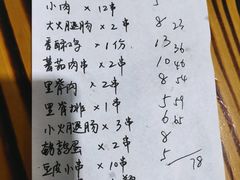 小肉 × 12串 5
大火腿肠 × 2串 8 23
香酥鸡 × 1份 13 36
蕃茄肉串 × 2串 10 46
里脊肉 × 2串 8 54
里脊排 × 1串 5 59
小火腿肠 × 3串 6 65
鹌鹑蛋 × 2串 8
豆皮小串 × 10串 5 78